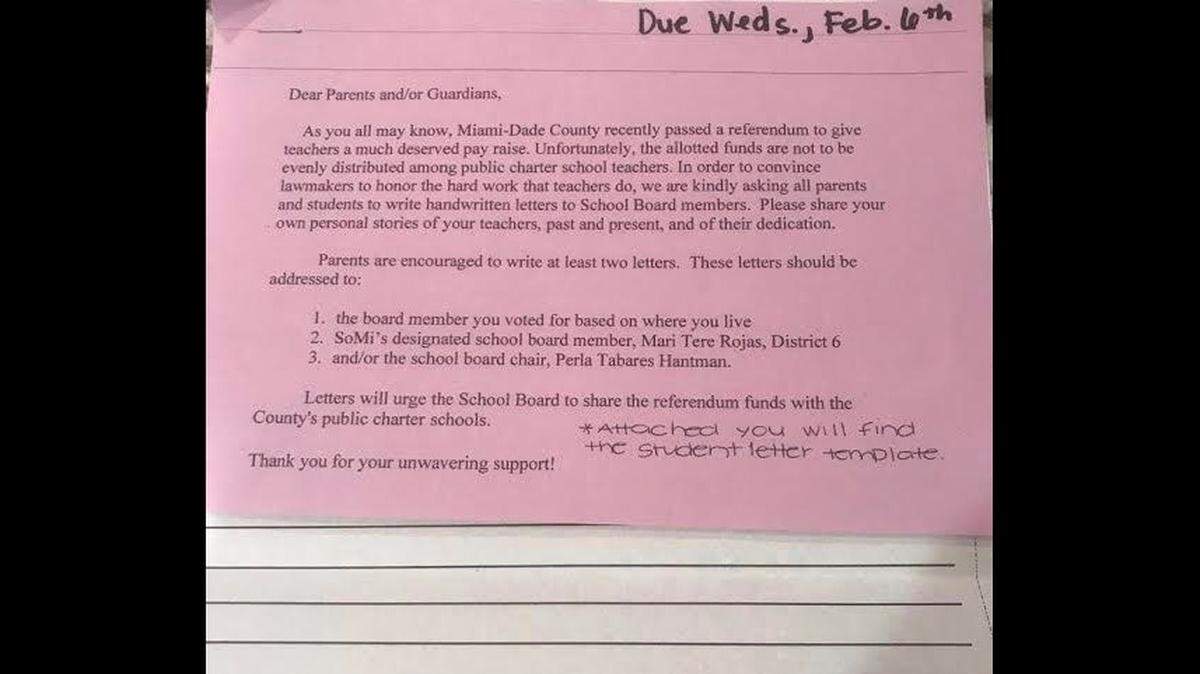 Due Weds., Feb. 6th
Dear Parents and/or Guardians,
As you all may know, Miami-Dade County recently passed a referendum to give
teachers a much deserved pay raise. Unfortunately, the allotted funds are not to be
evenly distributed among public charter school teachers. In order to convince
lawmakers to honor the hard work that teachers do, we are kindly asking all parents
and students to write handwritten letters to School Board members. Please share your
own personal stories of your teachers, past and present, and of their dedication.
Parents are encouraged to write at least two letters. These letters should be
addressed to:
1. the board member you voted for based on where you live
2. SoMi's designated school board member, Mari Tere Rojas, District 6
3. and/or the school board chair, Perla Tabares Hantman.
Letters will urge the School Board to share the referendum funds with the
County's public charter schools.
*Attached you will find
the student letter template.
Thank you for your unwavering support!